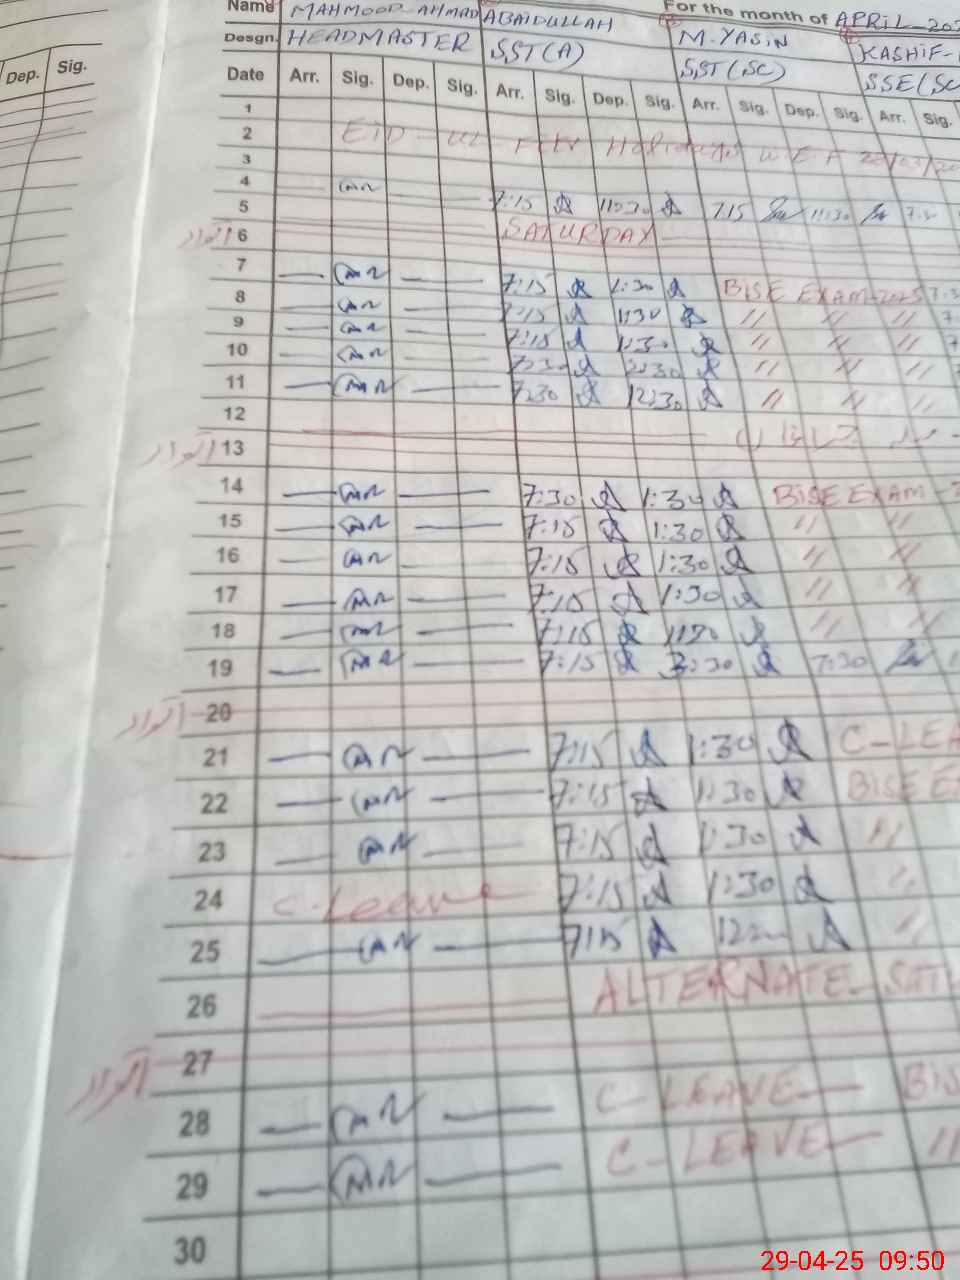 Name MAHMOOD AHMAD ABAIDULLAH For the month of APRIL
Desgn. HEADMASTER SST(A) M.YASIN KASHIF
SST(SC) SSE(SC
Dep. Sig.
Date Arr. Sig. Dep. Sig. Arr. Sig. Dep. Sig. Arr. Sig. Dep. Sig. Arr. Sig.
1
2 EID-UL-FITR Holidays W.E.F
3
4
5 7:15 11:30 7:15 11:30
اتوار 6 SATURDAY
7 7:15 1:30 BISE EXAM-2025
8 7:15 1:30 〃 〃 〃
9 7:15 1:30 〃 〃 〃
10 7:30 12:30 〃 〃 〃
11 7:30 12:30 〃 〃 〃
12
اتوار 13
14 7:30 1:30 BISE EXAM
15 7:15 1:30 〃 〃
16 7:15 1:30 〃 〃
17 7:15 1:30 〃 〃
18 7:15 1:30 〃 〃
19 7:15 7:30
اتوار 20
21 7:15 1:30 C-LEA
22 7:15 1:30 BISE E
23 7:15 1:30 〃
24 C-Leave 7:15 1:30 〃
25 7:15 〃
26 ALTERNATE SAT
اتوار 27
28 C-LEAVE BIS
29 C-LEAVE 〃
30
29-04-25 09:50